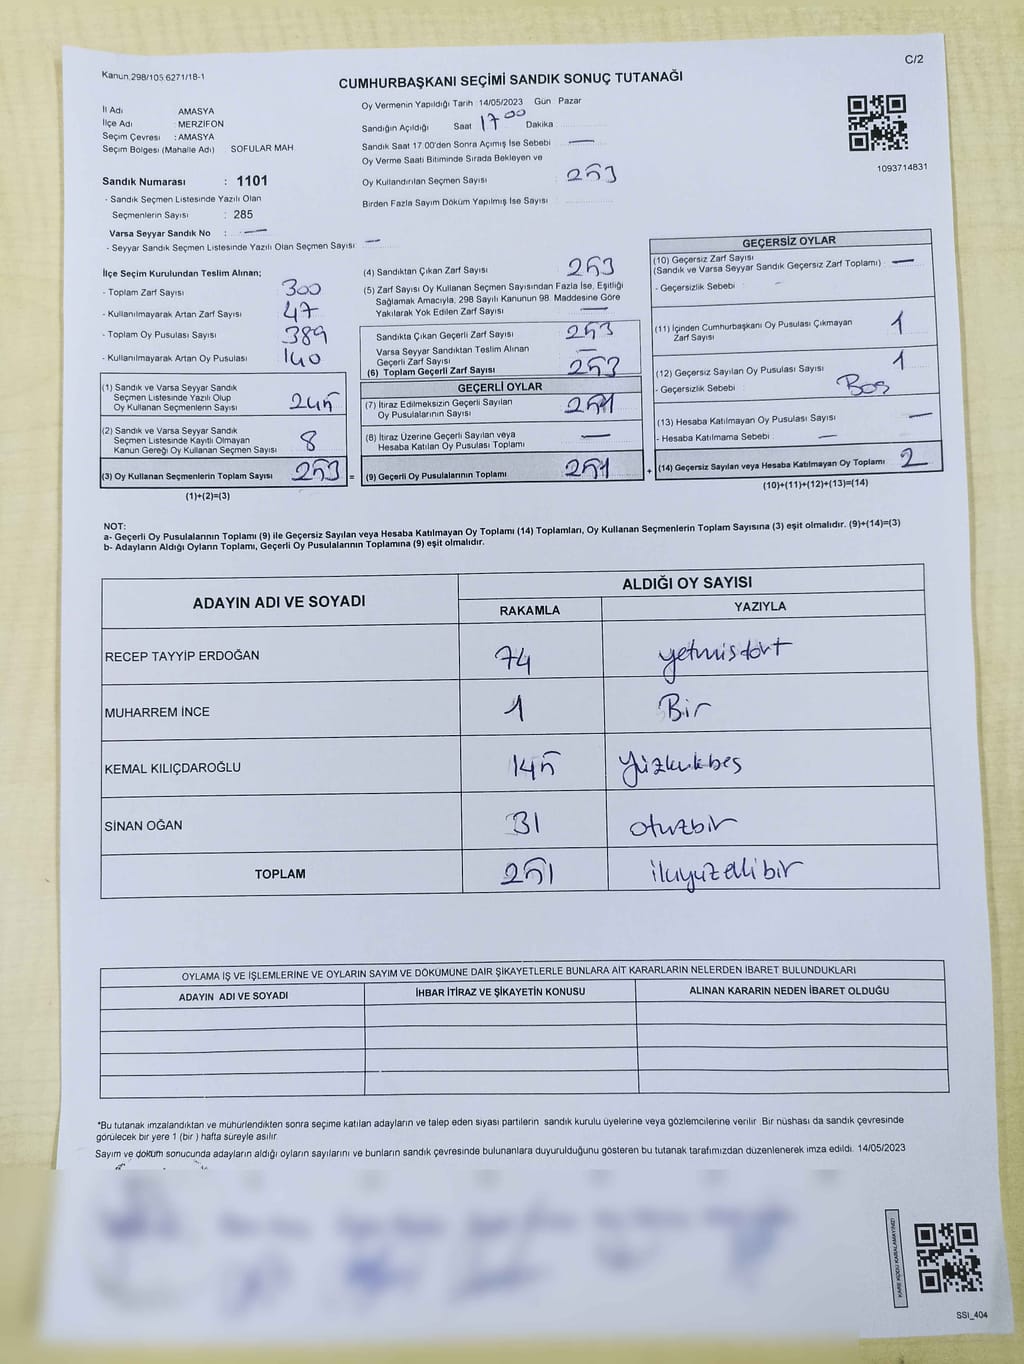 Kanun.298/105.6271/18-1
C/2
CUMHURBAŞKANI SEÇİMİ SANDIK SONUÇ TUTANAĞI
İl Adı AMASYA
İlçe Adı : MERZİFON
Seçim Çevresi : AMASYA
Seçim Bölgesi (Mahalle Adı) SOFULAR MAH
Sandık Numarası : 1101
- Sandık Seçmen Listesinde Yazılı Olan
Seçmenlerin Sayısı : 285
Varsa Seyyar Sandık No : —
- Seyyar Sandık Seçmen Listesinde Yazılı Olan Seçmen Sayısı —
Oy Vermenin Yapıldığı Tarih 14/05/2023 Gün Pazar
Sandığın Açıldığı Saat 17 00 Dakika
Sandık Saat 17.00'den Sonra Açımış İse Sebebi —
Oy Verme Saati Bitiminde Sırada Bekleyen ve
Oy Kullandırılan Seçmen Sayısı 253
Birden Fazla Sayım Döküm Yapılmış İse Sayısı
1093714831
İlçe Seçim Kurulundan Teslim Alınan;
- Toplam Zarf Sayısı 300
- Kullanılmayarak Artan Zarf Sayısı 47
- Toplam Oy Pusulası Sayısı 389
- Kullanılmayarak Artan Oy Pusulası 140
(1) Sandık ve Varsa Seyyar Sandık
Seçmen Listesinde Yazılı Olup
Oy Kullanan Seçmenlerin Sayısı 245
(2) Sandık ve Varsa Seyyar Sandık
Seçmen Listesinde Kayıtlı Olmayan
Kanun Gereği Oy Kullanan Seçmen Sayısı 8
(3) Oy Kullanan Seçmenlerin Toplam Sayısı 253 =
(1)+(2)=(3)
(4) Sandıktan Çıkan Zarf Sayısı 253
(5) Zarf Sayısı Oy Kullanan Seçmen Sayısından Fazla İse, Eşitliği
Sağlamak Amacıyla, 298 Sayılı Kanunun 98. Maddesine Göre
Yakılarak Yok Edilen Zarf Sayısı —
Sandıkta Çıkan Geçerli Zarf Sayısı 253
Varsa Seyyar Sandıktan Teslim Alınan
Geçerli Zarf Sayısı —
(6) Toplam Geçerli Zarf Sayısı 253
GEÇERLİ OYLAR
(7) İtiraz Edilmeksizin Geçerli Sayılan
Oy Pusulalarının Sayısı 251
(8) İtiraz Üzerine Geçerli Sayılan veya
Hesaba Katılan Oy Pusulası Toplamı —
(9) Geçerli Oy Pusulalarının Toplamı 251 +
GEÇERSİZ OYLAR
(10) Geçersiz Zarf Sayısı
(Sandık ve Varsa Seyyar Sandık Geçersiz Zarf Toplamı) —
- Geçersizlik Sebebi -
(11) İçinden Cumhurbaşkanı Oy Pusulası Çıkmayan
Zarf Sayısı 1
(12) Geçersiz Sayılan Oy Pusulası Sayısı 1
- Geçersizlik Sebebi Boş
(13) Hesaba Katılmayan Oy Pusulası Sayısı —
- Hesaba Katılmama Sebebi —
(14) Geçersiz Sayılan veya Hesaba Katılmayan Oy Toplamı 2
(10)+(11)+(12)+(13)=(14)
NOT:
a- Geçerli Oy Pusulalarının Toplamı (9) ile Geçersiz Sayılan veya Hesaba Katılmayan Oy Toplamı (14) Toplamları, Oy Kullanan Seçmenlerin Toplam Sayısına (3) eşit olmalıdır. (9)+(14)=(3)
b- Adayların Aldığı Oyların Toplamı, Geçerli Oy Pusulalarının Toplamına (9) eşit olmalıdır.
ADAYIN ADI VE SOYADI
ALDIĞI OY SAYISI
RAKAMLA YAZIYLA
RECEP TAYYİP ERDOĞAN 74 yetmisdört
MUHARREM İNCE 1 Bir
KEMAL KILIÇDAROĞLU 145 yüzkırkbeş
SİNAN OĞAN 31 otuzbir
TOPLAM 251 ikiyüzellibir
OYLAMA İŞ VE İŞLEMLERİNE VE OYLARIN SAYIM VE DÖKÜMÜNE DAİR ŞİKAYETLERLE BUNLARA AİT KARARLARIN NELERDEN İBARET BULUNDUKLARI
ADAYIN ADI VE SOYADI İHBAR İTİRAZ VE ŞİKAYETİN KONUSU ALINAN KARARIN NEDEN İBARET OLDUĞU
*Bu tutanak imzalandıktan ve mühürlendikten sonra seçime katılan adayların ve talep eden siyası partilerin sandık kurulu üyelerine veya gözlemcilerine verilir Bir nüshası da sandık çevresinde
görülecek bir yere 1 (bir ) hafta süreyle asılır
Sayım ve döküm sonucunda adayların aldığı oyların sayılarını ve bunların sandık çevresinde bulunanlara duyurulduğunu gösteren bu tutanak tarafımızdan düzenlenerek imza edildi. 14/05/2023
KARE KODU KARALAMAYINIZ!
SSI_404